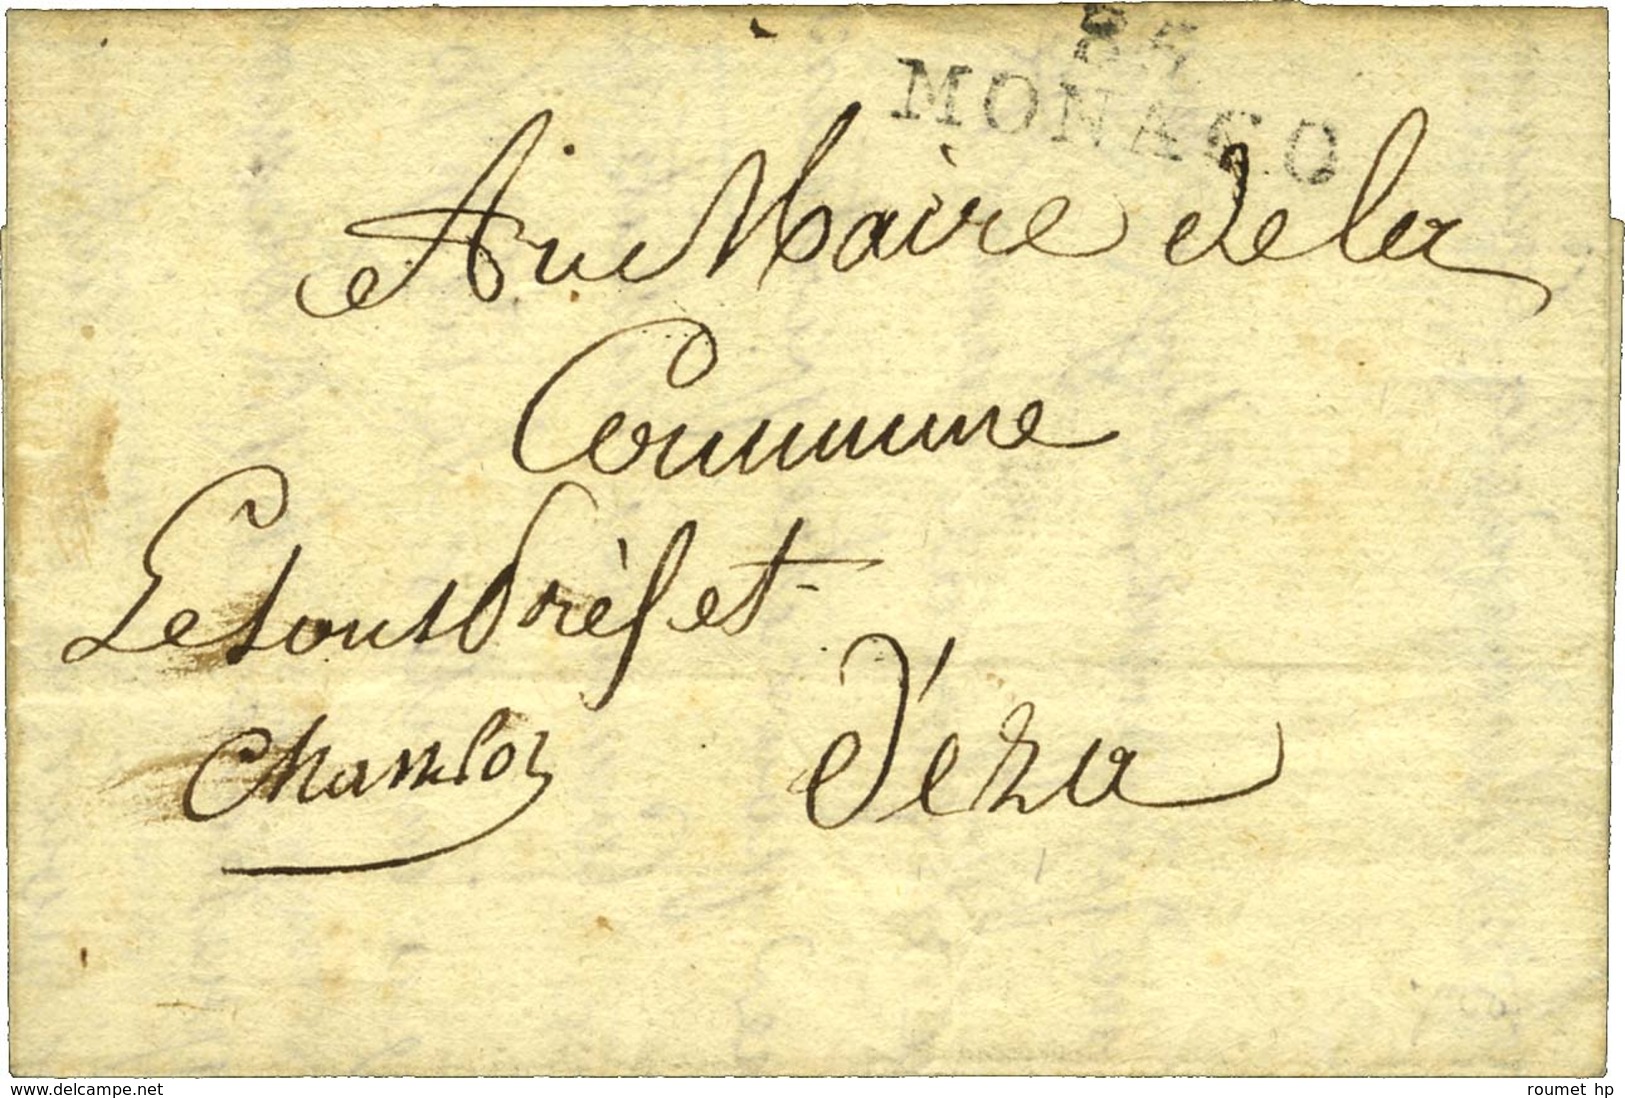 85
MONACO
Au Maire de la
Commune
Le sous Prèfet
d'éza
www.delcampe.net
roumet hp